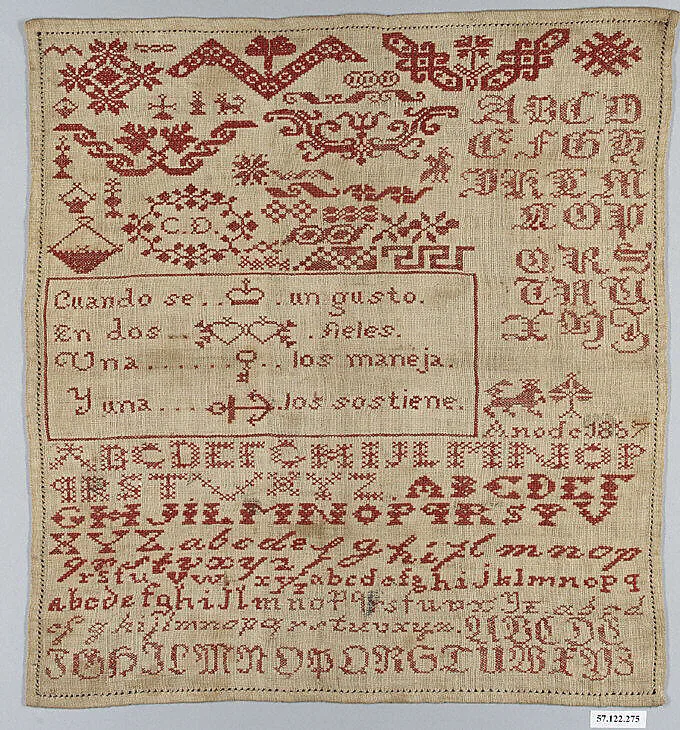 A B C D
E F G H
I K L M
N O P
C. D.
Q R S
T V U
X Y Z
Cuando se.. .un gusto.
En dos .. .fieles.
Una....... ..los maneja.
Y una .... .los sostiene.
Ano de 1857
A B C D E F G H I J L M N O P
Q R S T V X Y Z A B C D E F
G H I J L M N O P Q R S T V
X Y Z a b c d e f g h i j l m n o p
q r s t v x y z
a b c d e f g h i j k l m n o p q
a b c d e f g h i j l m n o p q s t u v x y z a b c d
e f g h i j l m n o p q r s t u v x y z. A B C D E
F G H I L M N O P Q R S T U W X Y Z
57.122.275